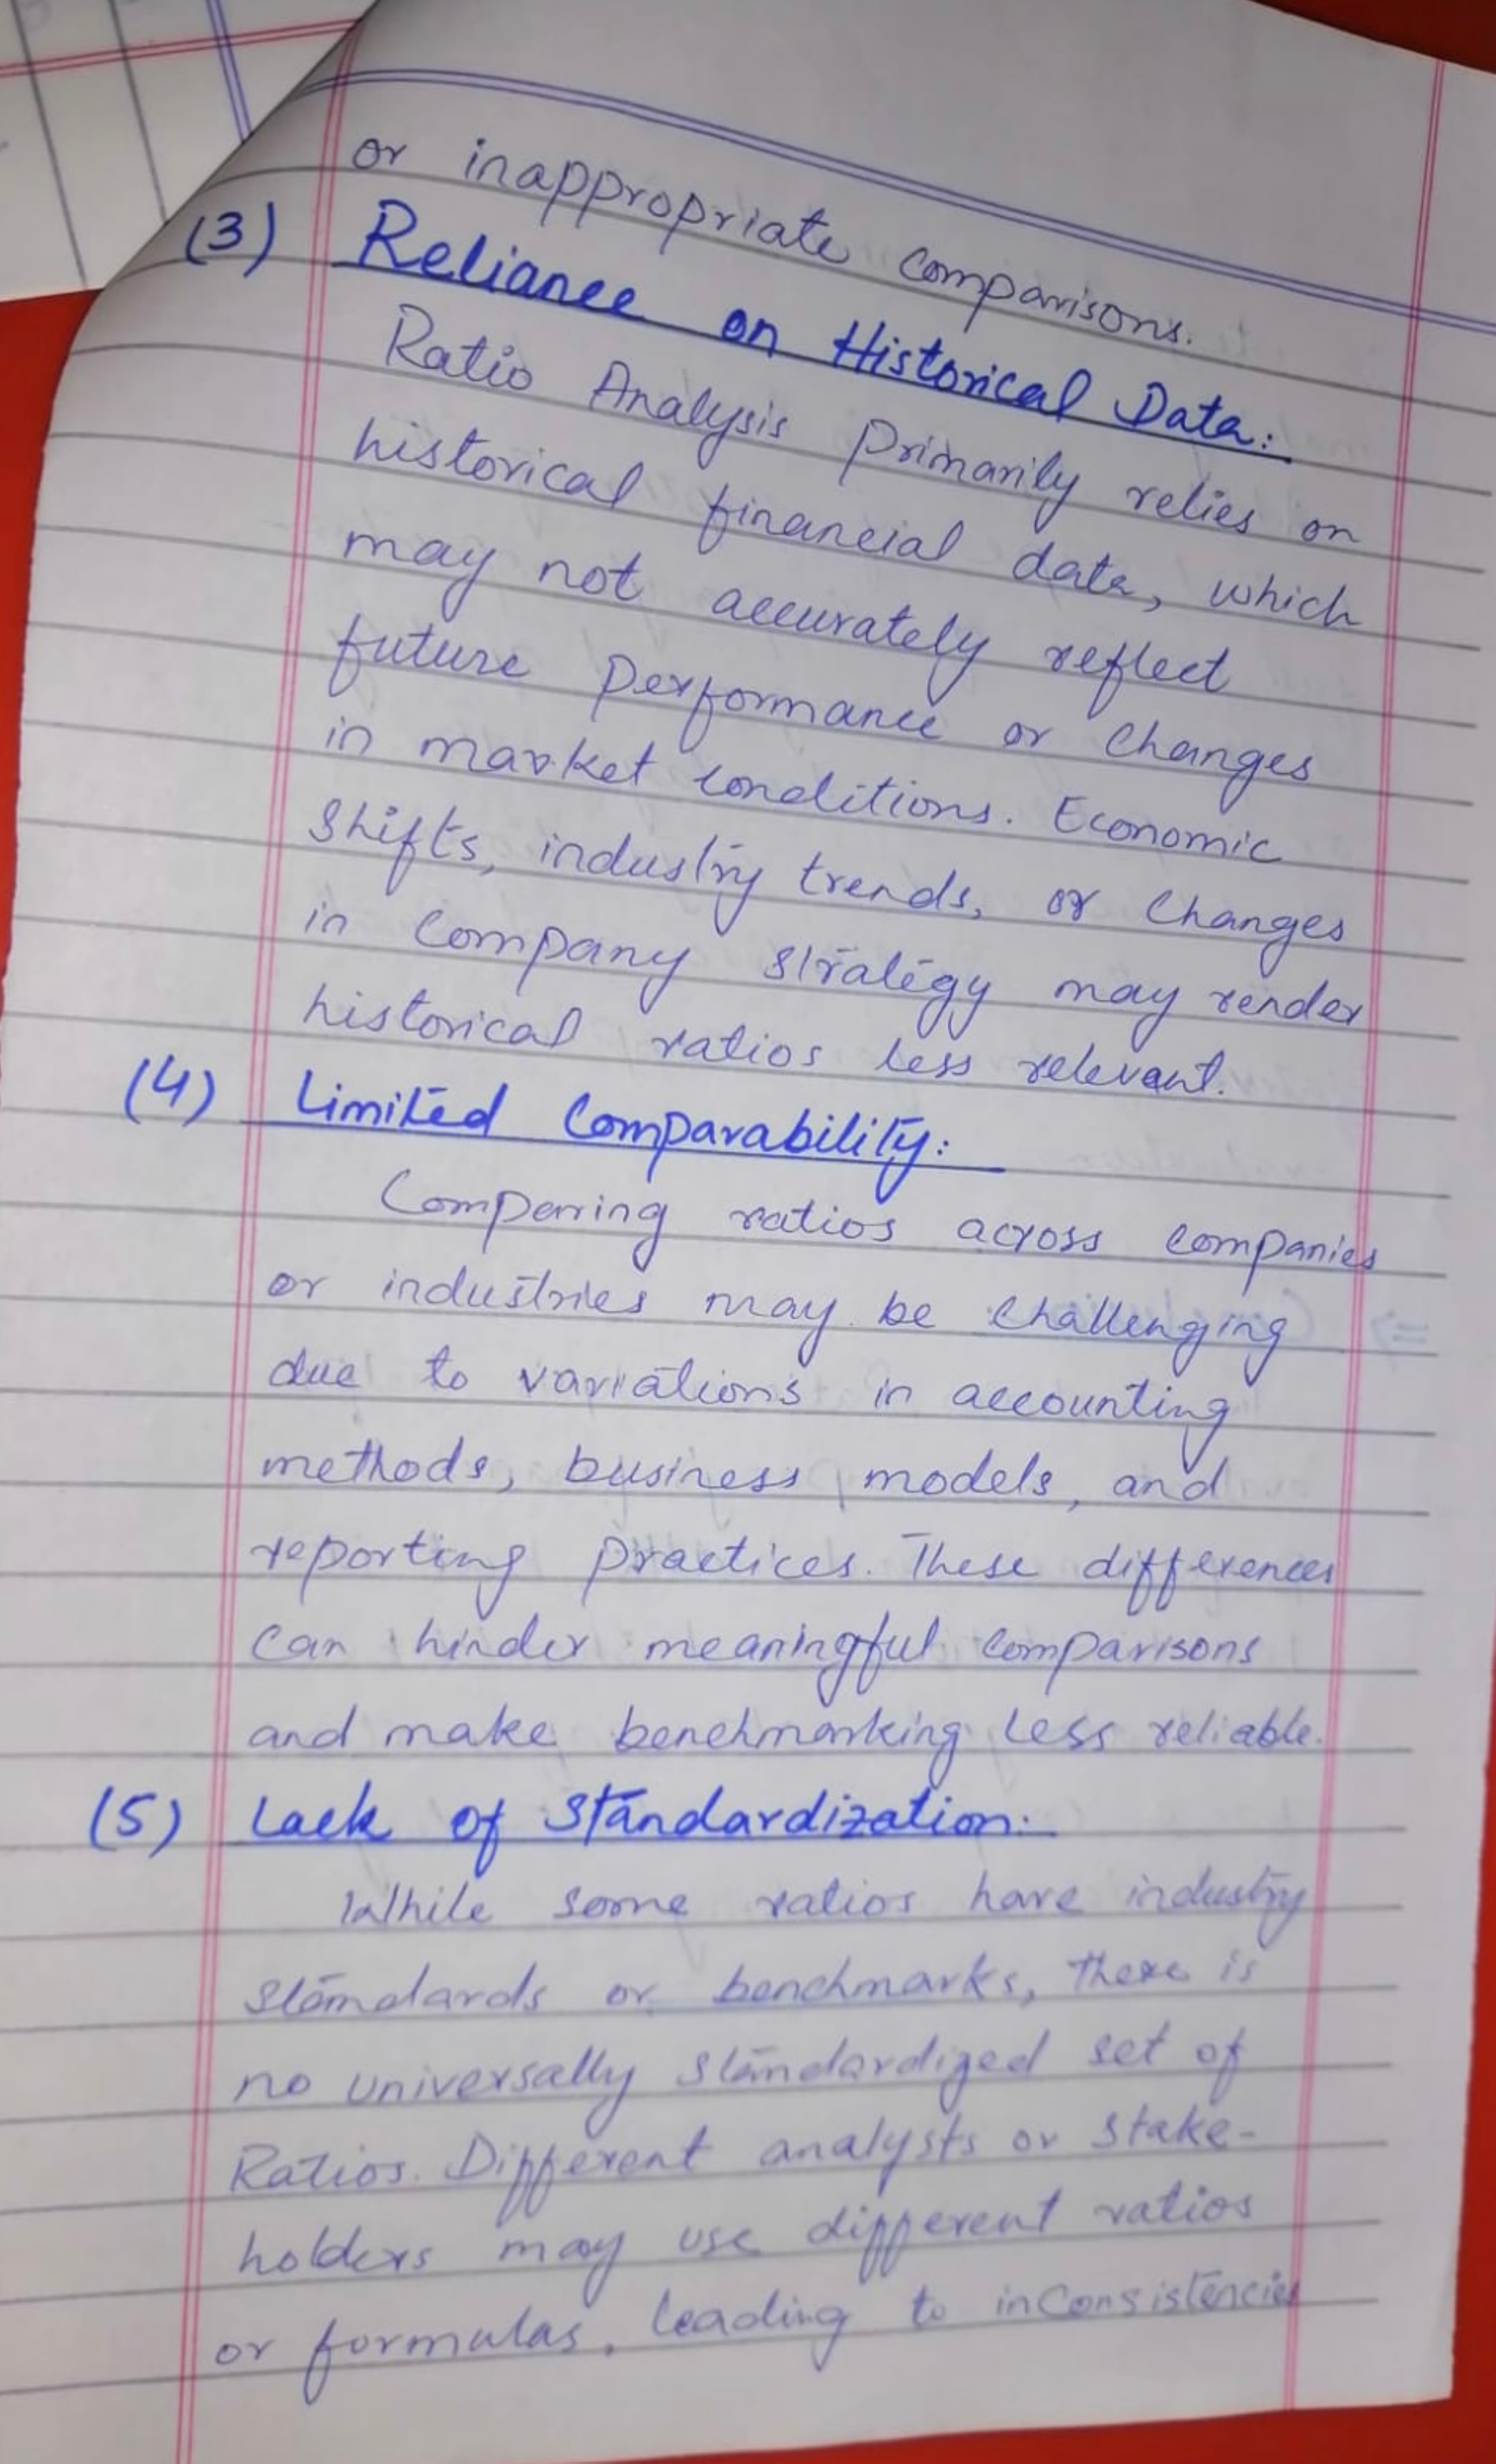 or inappropriate comparisons.
(3) Reliance on Historical Data:
Ratio Analysis primarily relies on
historical financial data, which
may not accurately reflect
future performance or changes
in market conditions. Economic
shifts, industry trends, or changes
in company strategy may render
historical ratios less relevant.
(4) Limited Comparability:
Comparing ratios across companies
or industries may be challenging
due to variations in accounting
methods, business models, and
reporting practices. These differences
can hinder meaningful comparisons
and make benchmarking less reliable.
(5) Lack of Standardization:
While some ratios have industry
standards or benchmarks, there is
no universally standardized set of
Ratios. Different analysts or stake-
holders may use different ratios
or formulas, leading to inconsistencies